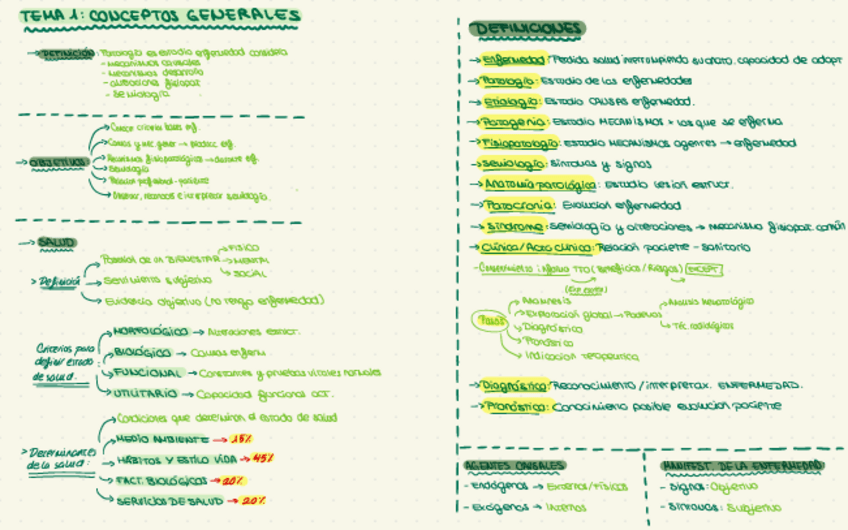 TEMA 1: CONCEPTOS GENERALES
→ DEFINICIÓN: Patología es estudio enfermedad considera
- mecanismos causales
- mecanismos desarrollo
- alteraciones fisiopat.
- semiología
→ OBJETIVOS
Conocer criterios bases enf.
Causas y mec. gener → producc enf.
Mecanismos fisiopatológicos →
Semiología
Relación profesional - paciente
Observar, reconocer e interpretar semiología.
→ SALUD
> Definición
Posesión de un BIENESTAR
→ FISICO
→ MENTAL
→ SOCIAL
Sentimiento subjetivo
Evidencia objetiva (no tengo enfermedad)
Criterios para definir estado de salud:
MORFOLÓGICO → Alteraciones estruc.
BIOLÓGICO → Causas enferm
FUNCIONAL → Constantes y pruebas vitales normales
UTILITARIO → Capacidad funcional act.
> Determinantes de la salud:
Condiciones que determinan el estado de salud
MEDIO AMBIENTE → 15%
HÁBITOS Y ESTILO VIDA → 45%
FACT. BIOLÓGICOS → 20%
SERVICIOS DE SALUD → 20%
DEFINICIONES
→ Enfermedad: Perdida salud interrumpiendo capacidad de adapt
→ Patología: Estudio de las enfermedades
→ Etiología: Estudio CAUSAS enfermedad.
→ Patogenia: Estudio MECANISMOS x los que se enferma
→ Fisiopatología: Estudio MECANISMOS agentes → enfermedad
→ Semiología: Síntomas y signos
→ Anatomía patológica: Estudio lesión estruc.
→ Patocronia: Evolución enfermedad
→ Síndrome: semiología y alteraciones → mecanismo fisiopat. común
→ Clínica/Acto clínico: Relación paciente - sanitario
- Consentimiento inform TTO (Beneficios / Riesgos) EXCEPT
Fases
Anamnesis
Exploración global → Pruebas
→ Análisis hematológico
→ Téc. radiológicas
Diagnóstico
Pronóstico
Indicación terapeutica
→ Diagnóstico: Reconocimiento / interpretac. ENFERMEDAD.
→ Pronóstico: Conocimiento posible evolución paciente
AGENTES CAUSALES
- Endógenos → Externos/Físicos
- Exógenos → Internos
MANIFEST. DE LA ENFERMEDAD
- Signos: Objetivo
- Síntomas: Subjetivo